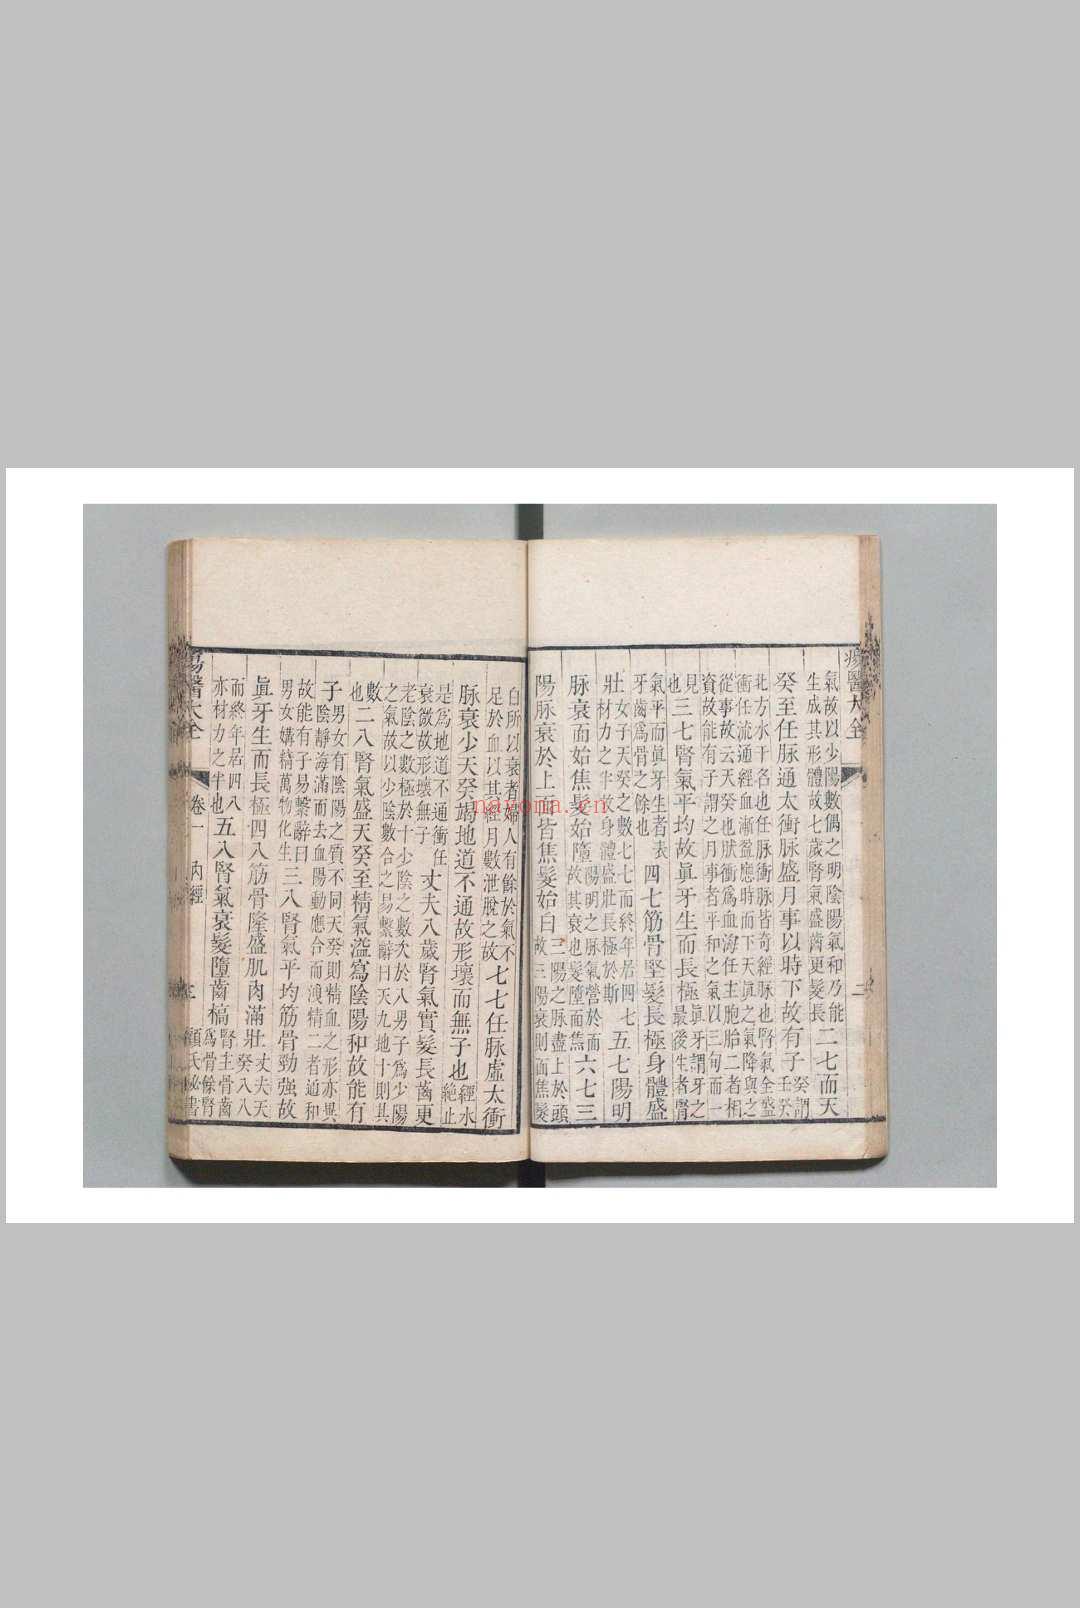 瘍醫大全 二
氣故以少陽數偶之明陰陽氣和乃能生成其形體故七歲腎氣盛齒更髮長二七而天
癸至任脉通太衝脉盛月事以時下故有子癸謂壬癸
北方水干名也任脉衝脉皆奇經脉也腎氣全盛衝任流通經血漸盈應時而下天眞之氣降與之
從事故云天癸也肰衝爲血海任主胞胎二者相資故能有子謂之月事者平和之氣以三旬而一
見也三七腎氣平均故眞牙生而長極眞牙謂牙之最後生者腎
氣平而眞牙生者表牙齒爲骨之餘也四七筋骨堅髮長極身體盛
壯女子天癸之數七七而終年居四七材力之半故身體盛壯長極於斯五七陽明
脉衰面始焦髮始墮陽明之脉氣營於面故其衰也髮墮面焦六七三
陽脉衰於上面皆焦髮始白三陽之脉盡上於頭故三陽衰則面焦髮
白所以衰者婦人有餘於氣不足於血以其經月數泄脫之故七七任脉虛太衝
脉衰少天癸竭地道不通故形壞而無子也經水絶止
是爲地道不通衝任衰微故形壞無子丈夫八歲腎氣實髮長齒更
老陰之數極於十少陰之數次於八男子爲少陽之氣故以少陰數合之易繫辭曰天九地十則其
數也二八腎氣盛天癸至精氣溢寫陰陽和故能有
子男女有陰陽之質不同天癸則精血之形亦異陰靜海滿而去血陽動應合而洩精二者通和
故能有子易繫辭曰男女媾精萬物化生三八腎氣平均筋骨勁强故
眞牙生而長極四八筋骨隆盛肌肉滿壯丈夫天癸八八
而終年居四八亦材力之半也五八腎氣衰髮墮齒槁腎主骨齒爲骨餘腎
瘍醫大全 卷一 內經 三 顧氏秘書
nayona.cn